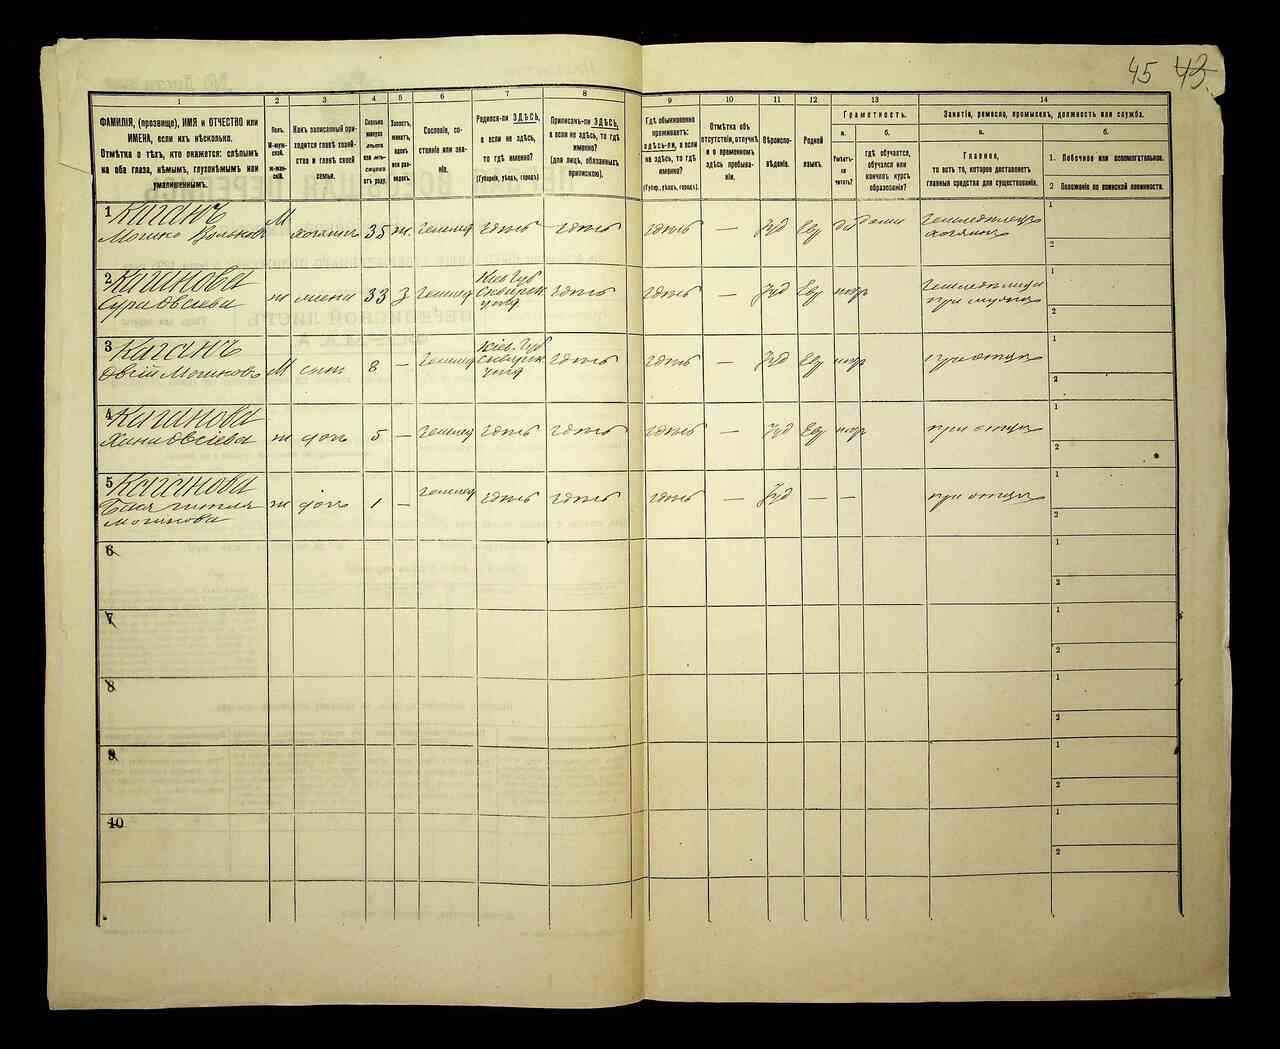 45 43.
1 2 3 4 5 6 7 8 9 10 11 12 13 14
ФАМИЛІЯ, (прозвище), ИМЯ и ОТЧЕСТВО или ИМЕНА, если ихъ нѣсколько.
Отмѣтка о тѣхъ, кто окажется: слѣпымъ на оба глаза, нѣмымъ, глухонѣмымъ или умалишеннымъ.
Полъ.
М-муж-
ской.
ж-жен-
скій.
Какъ записанный при-
ходится главѣ хозяй-
ства и главѣ своей
семьи.
Сословіе, со-
стояніе или зва-
ніе.
Родился-ли ЗДѢСЬ,
а если не здѣсь,
то гдѣ именно?
(Губернія, уѣздъ, городъ).
Приписанъ-ли ЗДѢСЬ,
а если не здѣсь, то гдѣ
именно?
(для лицъ, обязанныхъ
припискою).
Гдѣ обыкновенно
проживаетъ:
здѣсь-ли, а если
не здѣсь, то гдѣ
именно?
(Губер., уѣздъ, городъ).
Отмѣтка объ
отсутствіи, отлучкѣ
и о временномъ
здѣсь пребыва-
ніи.
Вѣроиспо-
вѣданіе.
Родной
языкъ.
Грамотность.
а. б.
Умѣетъ-
ли
читать?
гдѣ обучается,
обучался или
кончилъ курсъ
образованія?
Занятіе, ремесло, промыселъ, должность или служба.
а. б.
Главное,
то есть то, которое доставляетъ
главныя средства для существованія.
1. Побочное или вспомогательное.
2 Положеніе по воинской повинности.
1 Каганъ
Мошко М хозяинъ 35 ж. здѣсь здѣсь здѣсь — Іуд Евр да дома
хозяинъ
1
2
2 Каганова
Сура Овсіева ж жена 33 3 Кіев. Губ здѣсь здѣсь — Іуд Евр негр
при мужѣ
1
2
3 Каганъ
Овсій Мошковъ М сынъ 8 — Кіев. Губ здѣсь здѣсь — Іуд Евр негр при отцѣ
1
2
4 Каганова
Хана Овсіева ж дочь 5 — здѣсь здѣсь здѣсь — Іуд Евр негр при отцѣ
1
2
5 Каганова
ж дочь 1 — здѣсь здѣсь здѣсь — Іуд — — при отцѣ
Мошкова
1
2
6
1
2
7
1
2
8
1
2
9
1
2
10
1
2